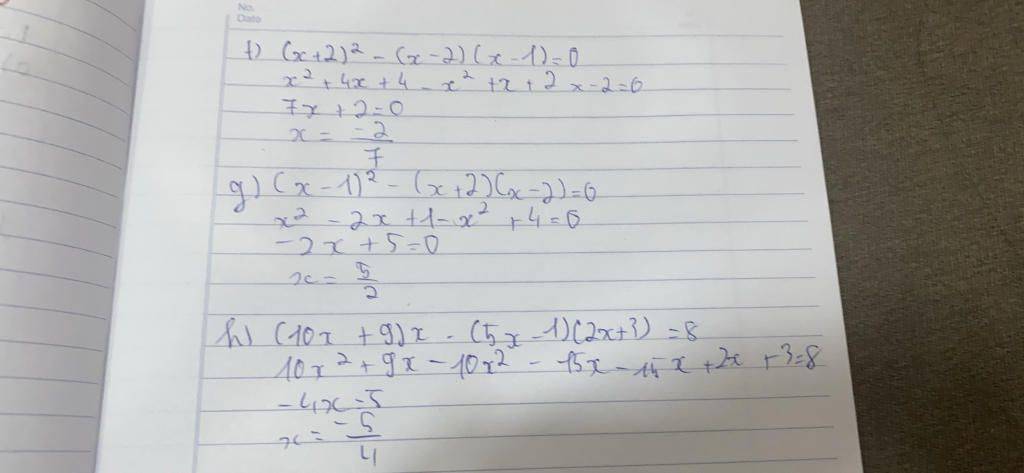 No.
Date
f) (x+2)² - (x-2)(x-1)=0
x² + 4x + 4 - x² + x + 2x - 2 = 0
7x + 2 = 0
x = -2/7
g) (x-1)² - (x+2)(x-2)=0
x² - 2x + 1 - x² + 4 = 0
-2x + 5 = 0
x = 5/2
h) (10x + 9)x - (5x-1)(2x+3) = 8
10x² + 9x - 10x² - 15x - 15x + 2x + 3 = 8
-4x = 5
x = -5/4